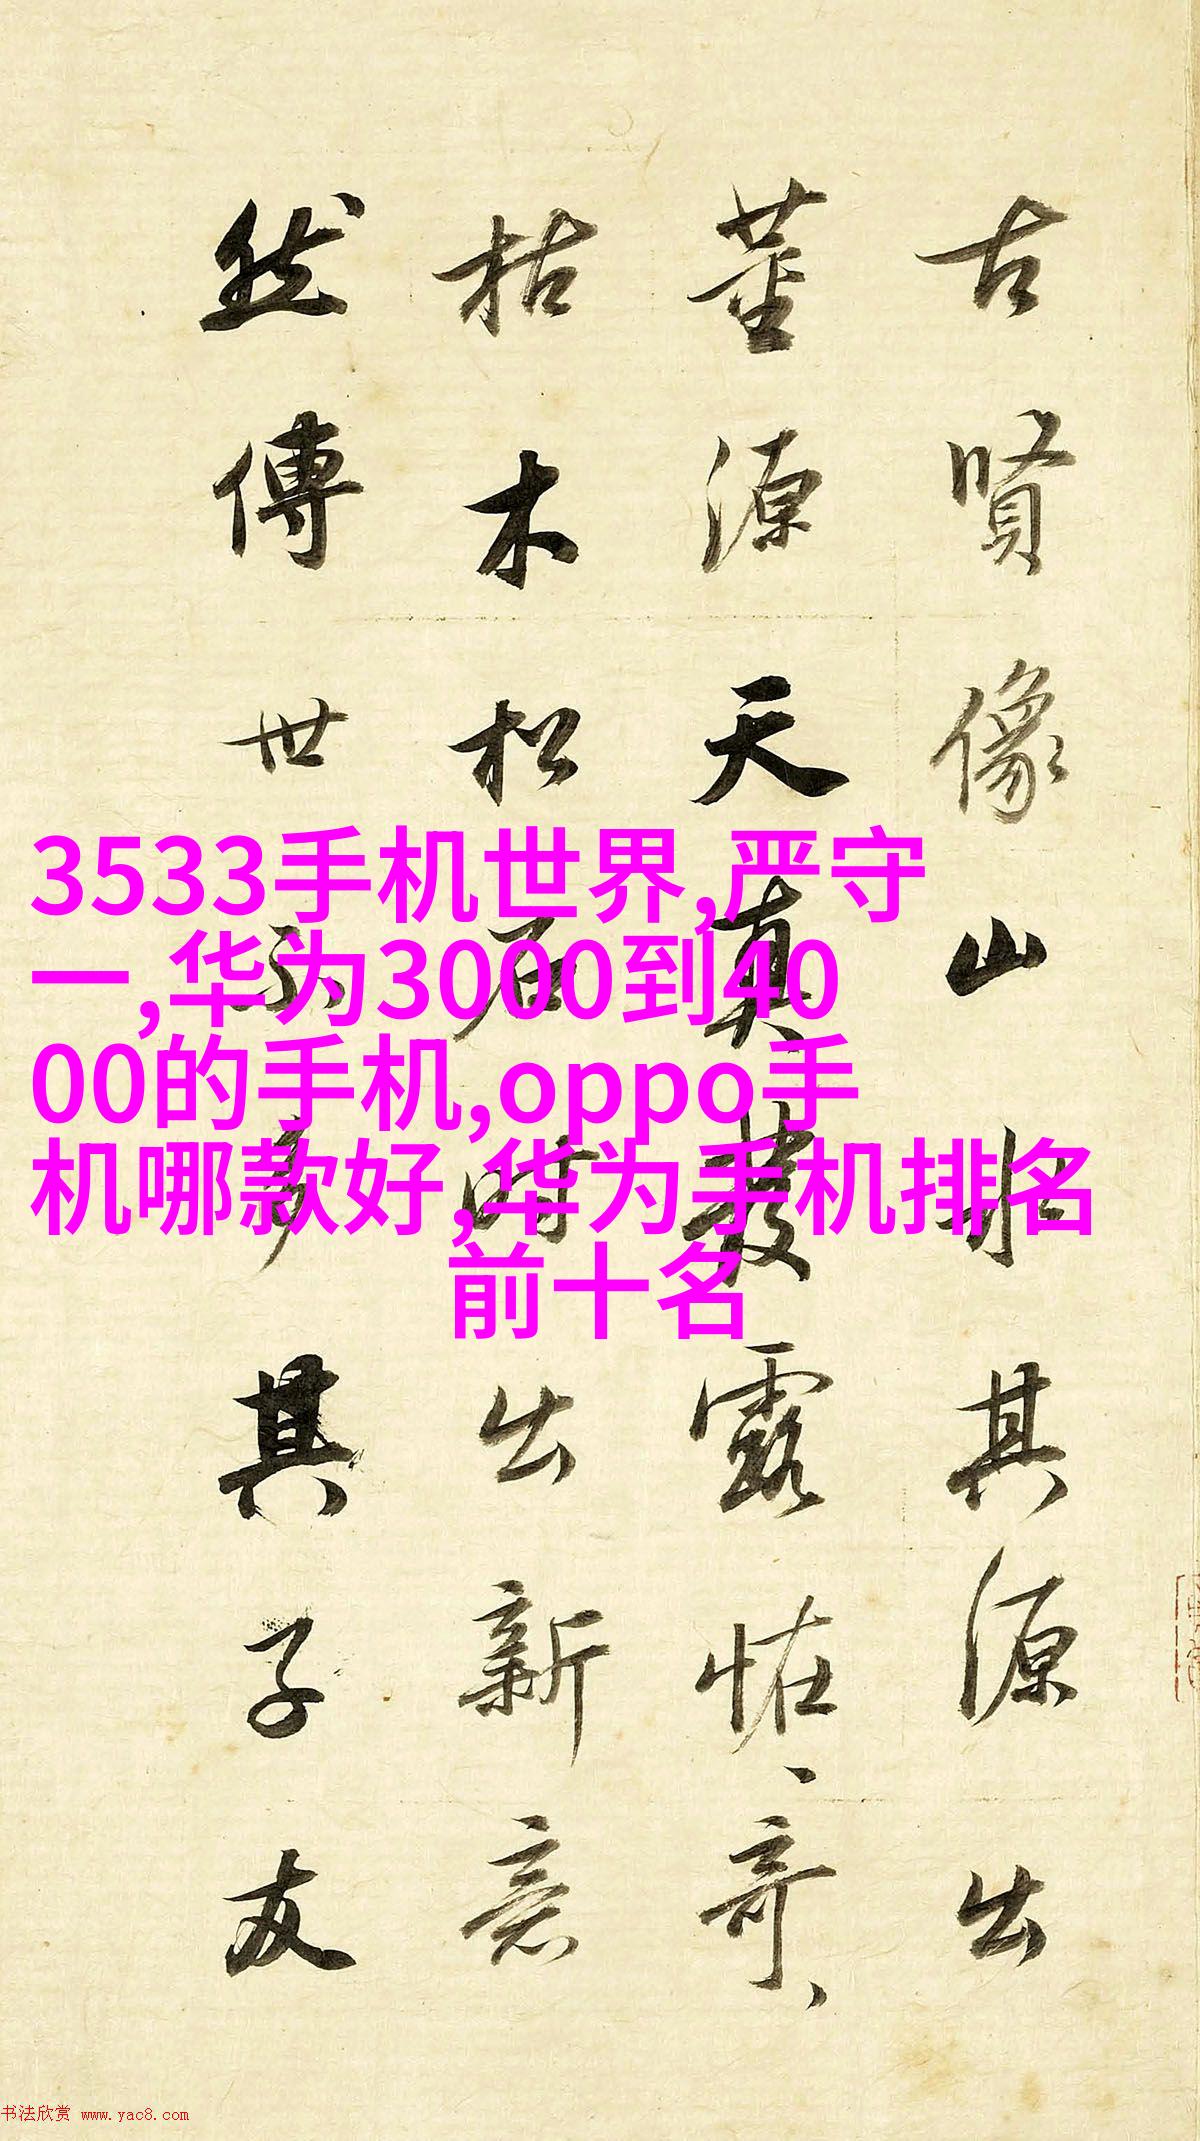 古賢像山水其源出
董源天真發露恠、奇、
枯木松石時出新意
然傳世不多其子友
3533手机世界,严守
一,华为3000到40
00的手机,oppo手
机哪款好,华为手机排名
前十名
书法欣赏 www.yac8.com